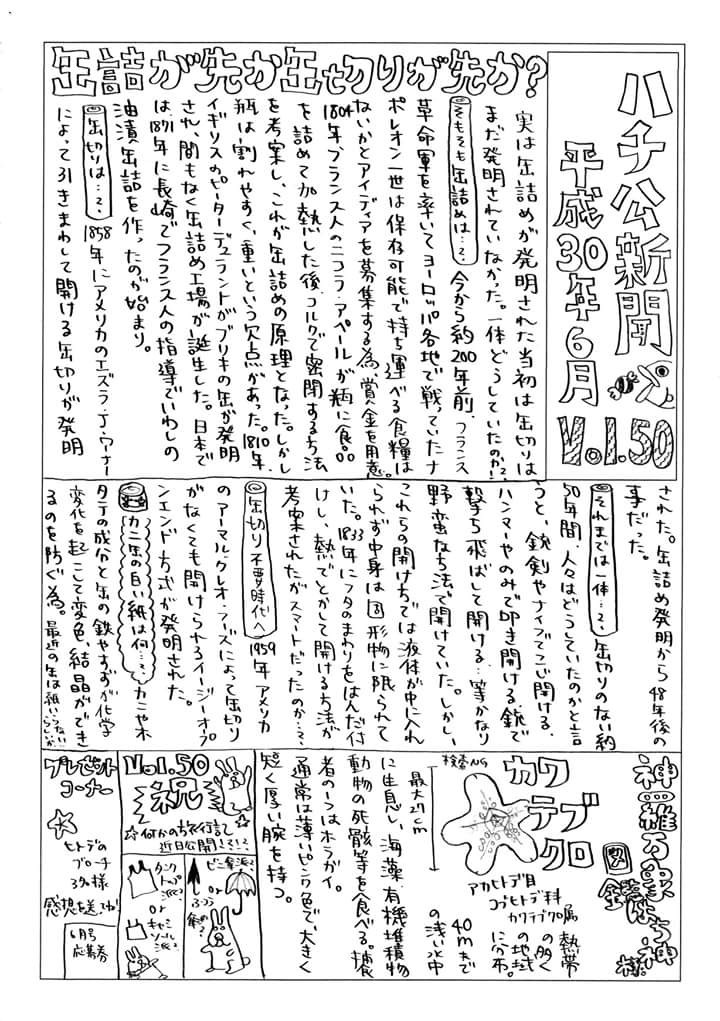 ハチ公新聞
平成30年6月
Vo.l.50
缶詰が先か缶切りが先か?
実は缶詰めが発明された当初は缶切りは
まだ発明されていなかった。一体どうしていたのか!?
そもそも缶詰めは…?
今から約200年前、フランス
革命軍を率いてヨーロッパ各地で戦っていたナ
ポレオン一世は保存可能で持ち運べる食糧は
ないかとアイディアを募集する為、賞金を用意。
1804年、フランス人のニコラ・アペールが瓶に食。。
を詰めて加熱した後、コルクで密閉する方法
を考案し、これが缶詰めの原理となった。しかし
瓶は割れやすく、重いという欠点があった。1810年、
イギリスのピーターデュラントがブリキの缶が発明
され、間もなく缶詰め工場が誕生した。日本で
は、1871年に長崎でフランス人の指導でいわしの
油漬缶詰を作ったのが始まり。
缶切りは…?
1858年にアメリカのエズラ・J・ワーナー
によって引きまわして開ける缶切りが発明
された。缶詰め発明から48年後の
事だった。
それまでは一体…?
缶切りのない約
50年間、人々はどうしていたのかと言
うと、銃剣やナイフでこじ開ける、
ハンマーやのみで叩き開ける、銃で
撃ち飛ばして開ける…等かなり
野蛮な方法で開けていた。しかし、
これらの開け方では液体が中に入れ
られず中身は固形物に限られて
いた。1833年にフタのまわりをはんだ付
けし、熱でとかして開ける方法が
考案されたがスマートだったのか…?
缶切り不要時代へ
1959年アメリカ
のアーマル・クレオ・フーズによって缶切り
がなくても開けられるイージーオープ
ンエンド方式が発明された。
カニ缶の白い紙は何…?
カニやホ
タテの成分と缶の鉄やすずが化学
変化を起こして変色、結晶ができ
るのを防ぐ為。最近の缶は紙いらないらしいが。
神羅万象
図鑑
はち神様
カワテブクロ
検索NG
最大27cm
アカヒトデ目
コブヒトデ科
カワテブクロ属
熱帯
の多く
の地域
に分布。
40mまで
の浅い水中
に生息し、海藻、有機堆積物
動物の死骸等を食べる。捕食
者の一つはホラガイ。
通常は薄いピンク色で、大きく
短く厚い腕を持つ。
Vo.l.50
祝
☆何かの旅行記
近日公開!?!?
ビニ傘派?
or
ふつう傘?
タンクトップ派?
or
キャミソール派?
プレゼント
コーナー
ヒトデの
ブローチ
3名様
感想を送ってね
6月号
応募券